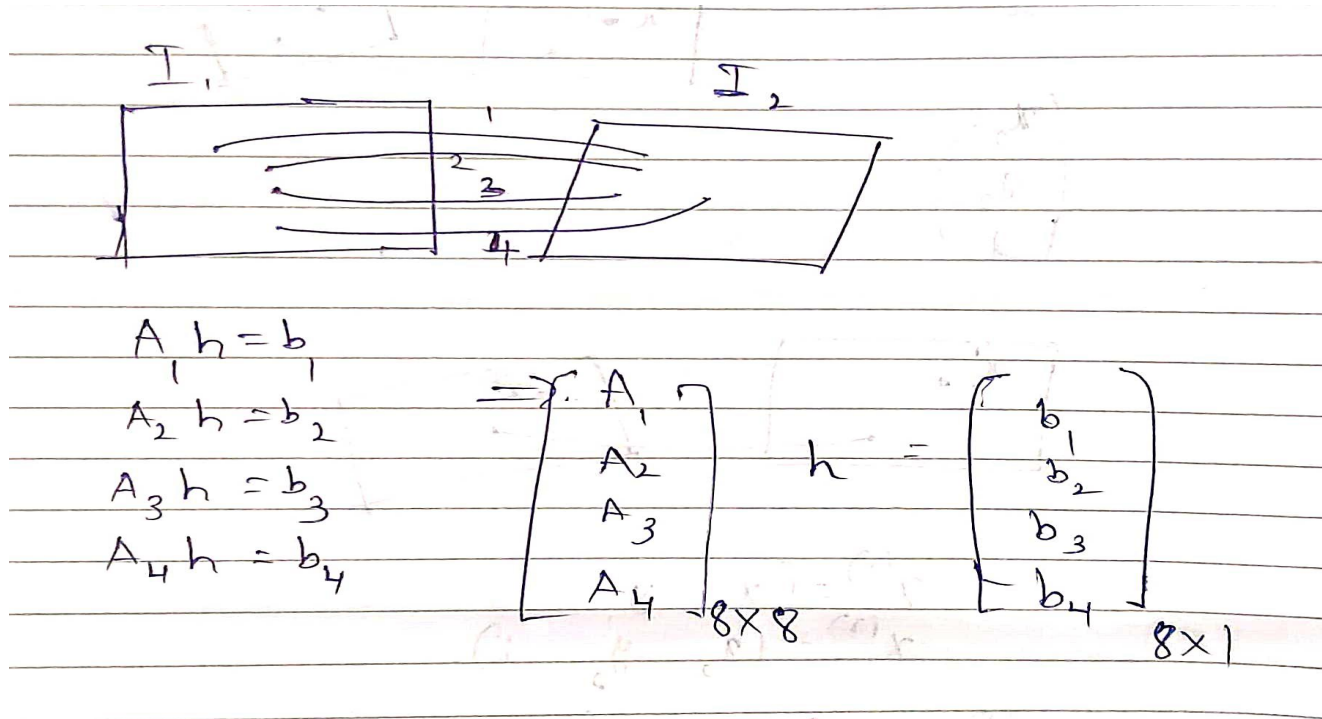 I₁
I₂
1
2
3
4
A₁ h = b₁
A₂ h = b₂
A₃ h = b₃
A₄ h = b₄
⇒ [ A₁ A₂ A₃ A₄ ] 8×8 h = [ b₁ b₂ b₃ b₄ ] 8×1